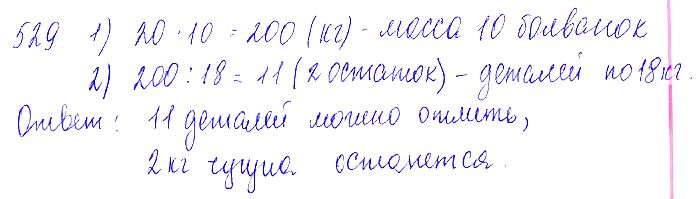 529. 1) 20 · 10 = 200 (кг) - масса 10 болванок
2) 200 : 18 = 11 (2 остаток) - деталей по 18 кг.
Ответ: 11 деталей можно отлить,
2 кг чугуна останется.